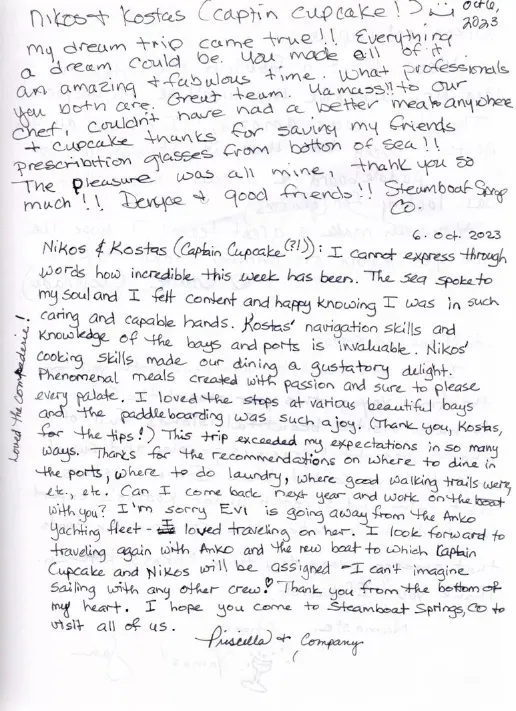 Nikos + Kostas (Captin Cupcake!)
Oct 6, 2023
my dream trip came true!! Everything
a dream could be. You made all of it
an amazing + fabulous time. What professionals
you both are. Great team. to our
Chef, couldn't have had a better meal anywhere
+ cupcake thanks for saving my friends
prescribtion glasses from botton of sea!!
The pleasure was all mine, thank you so
much!! + good friends!! Steamboat Springs
CO.
6. Oct. 2023
Nikos & Kostas (Captain Cupcake(?!)): I cannot express through
words how incredible this week has been. The sea spoke to
my soul and I felt content and happy knowing I was in such
caring and capable hands. Kostas' navigation skills and
knowledge of the bays and ports is invaluable. Nikos'
cooking skills made our dining a gustatory delight.
Phenomenal meals created with passion and sure to please
every palate. I loved the stops at various beautiful bays
and the paddleboarding was such a joy. (Thank you, Kostas,
for the tips!) This trip exceeded my expectations in so many
ways. Thanks for the recommendations on where to dine in
the ports, where to do laundry, where good walking trails were,
etc., etc. Can I come back next year and work on the boat
with you? I'm sorry Evi is going away from the Anko
Yachting fleet - I loved traveling on her. I look forward to
traveling again with Anko and the new boat to which Captain
Cupcake and Nikos will be assigned - I can't imagine
sailing with any other crew! Thank you from the bottom of
my heart. I hope you come to Steamboat Springs, CO to
visit all of us.
Priscilla + Company
Loved the !